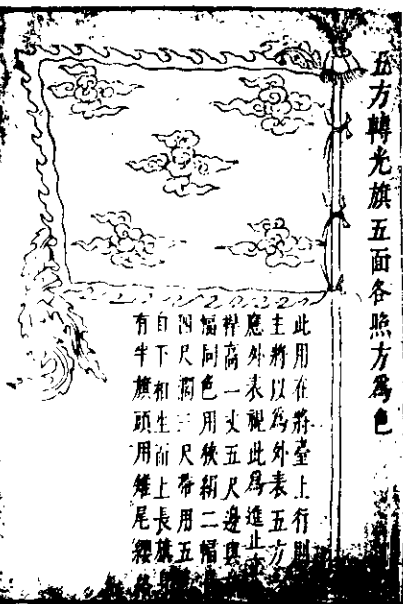 五方轉光旗五面各照方為色
此用在將臺上行則
主將以為外表五方
應外表視此為進止
桿高一丈五尺邊與
幅同色用狹絹二幅
四尺濶三尺帶用五
自下相生而上長旗
有半旗頭用雉尾纓